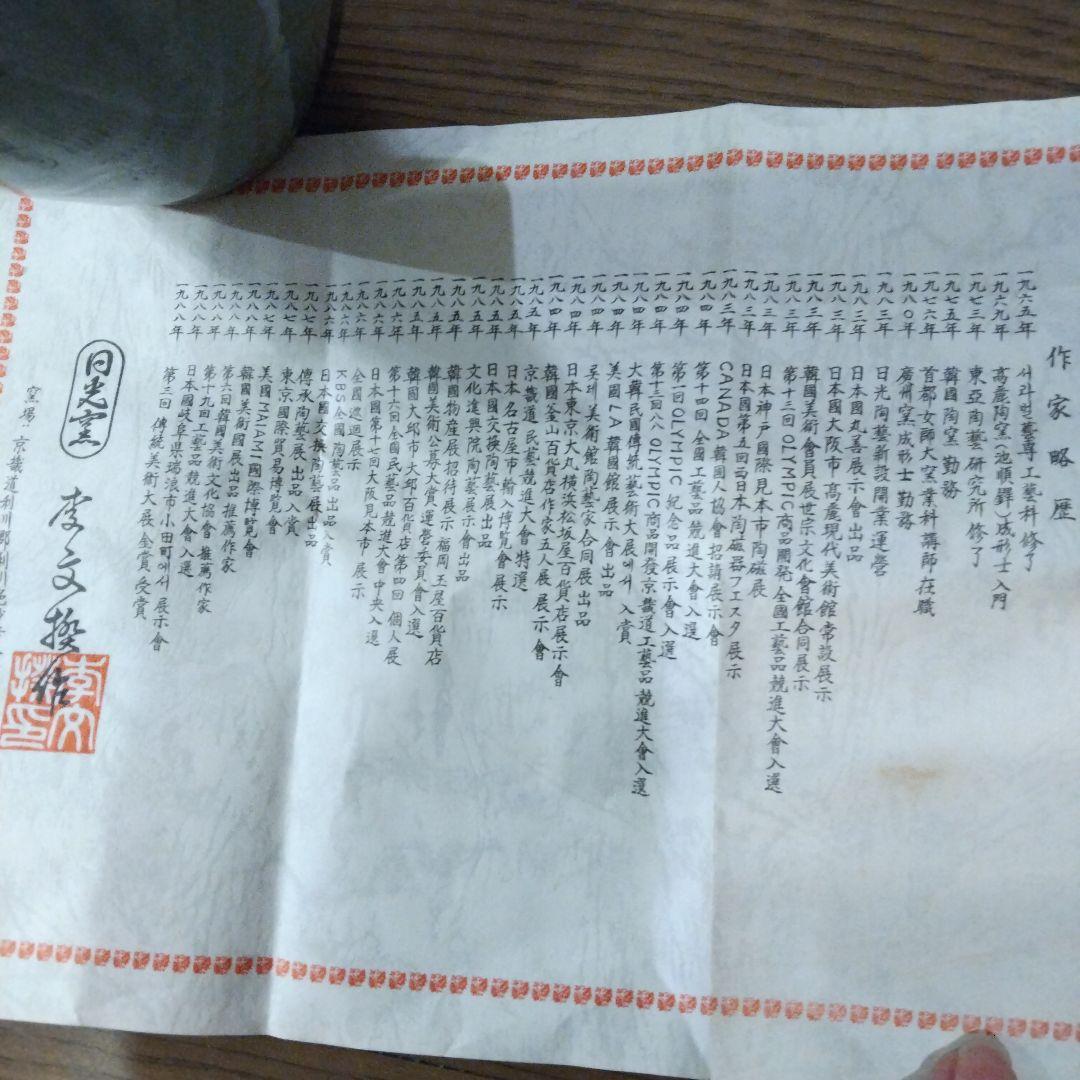 作家略歴
一九六五年 서라벌藝專工藝科修了
一九六九年 高麗陶窯(池順鐸)成形士入門
一九七三年 東亞陶藝研究所修了
一九七五年 韓國陶窯勤務
一九七六年 首都女師大窯業科講師在職
一九八〇年 廣州窯成形士勤務
一九八三年 日光陶藝新設開業運營
一九八三年 日本國丸善展示會出品
一九八三年 日本國大阪市高麗現代美術館常設展示
一九八三年 韓國美術會員展世宗文化會館合同展示
一九八三年 第十三回OLYMPIC商品開発全國工藝品競進大會入選
一九八三年 日本神戸國際見本市陶磁展
一九八三年 日本國第五回西日本陶磁器フエスタ展示
一九八四年 CANADA韓國人協會招請展示會
一九八四年 第十四回全國工藝品競進大會入選
一九八四年 第一回OLYMPIC紀念品展示會入選
一九八四年 第十三回八八OLYMPIC商品開發京畿道工藝品競進大會入選
一九八四年 大韓民國傳統藝術大展에서入賞
一九八四年 美國LA韓國館展示會出品
一九八四年 롯데美術館陶藝家合同展出品
一九八四年 日本東京大丸横浜松坂屋百貨店展示會
一九八四年 韓國釜山百貨店作家五人展展示會
一九八五年 京畿道民藝品競進大會特選
一九八五年 日本名古屋市輸入博覧會展示
一九八五年 日本國交換陶藝展出品
一九八五年 文化進興院陶藝展示會出品
一九八五年 韓國物産展招待展示福岡玉屋百貨店
一九八五年 韓國美術公募大賞運營委員會入選
一九八六年 韓國大邱市大邱百貨店第四回個人展
一九八六年 第十六回全國民藝品競進大會中央入選
一九八六年 日本國第十七回大阪見本市展示
一九八六年 全國巡迴展示
一九八六年 KBS全國陶藝品出品入賞
一九八七年 日本國交換陶藝展出品
一九八七年 傳承陶藝展出品入賞
一九八七年 東京國際貿易博覧會
一九八八年 美國MAIAMI國際博覧會
一九八八年 韓國美術國展出品推薦作家
一九八八年 第六回韓國美術文化協會推薦作家
一九八八年 第十九回工藝品競進大會入選
一九八八年 日本國岐阜県瑞浪市小田町에서展示會
第三回傳統美術大展金賞受賞
日光窯
李文
作
窯場:京畿道利川郡利川邑